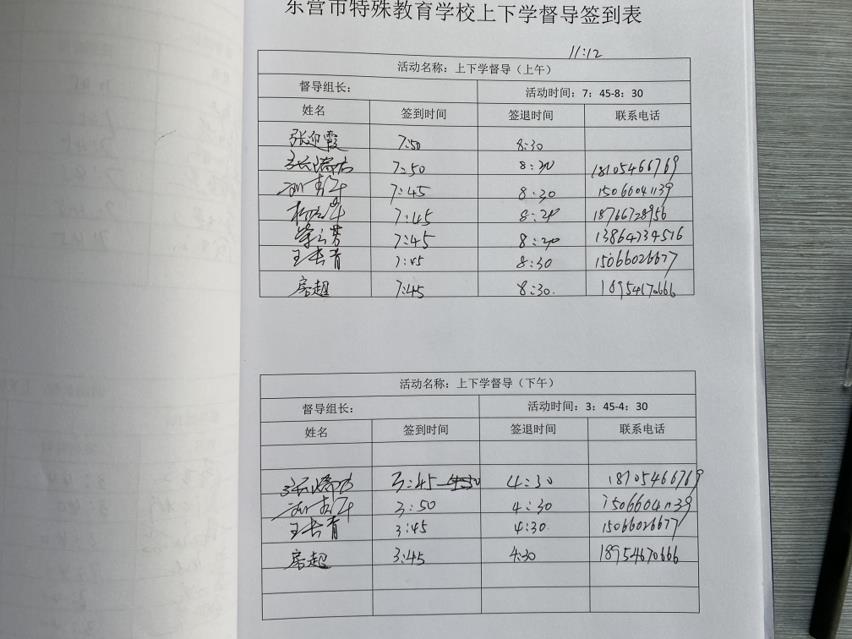 东营市特殊教育学校上下学督导签到表
11:12
活动名称：上下学督导（上午）
督导组长： 活动时间：7：45-8：30
姓名 签到时间 签退时间 联系电话
张迎霞 7:50 8:30
7:50 8:30 18105466769
7:45 8:30 15066041139
7:45 8:20 18766728956
7:45 8:20 13864734516
王长青 7:45 8:30 15066026677
房超 7:45 8:30 18954670666
活动名称：上下学督导（下午）
督导组长： 活动时间：3：45-4：30
姓名 签到时间 签退时间 联系电话
3:45 4:30 18105466769
3:50 4:30 15066041139
王长青 3:45 4:30 15066026677
房超 3:45 4:30 18954670666